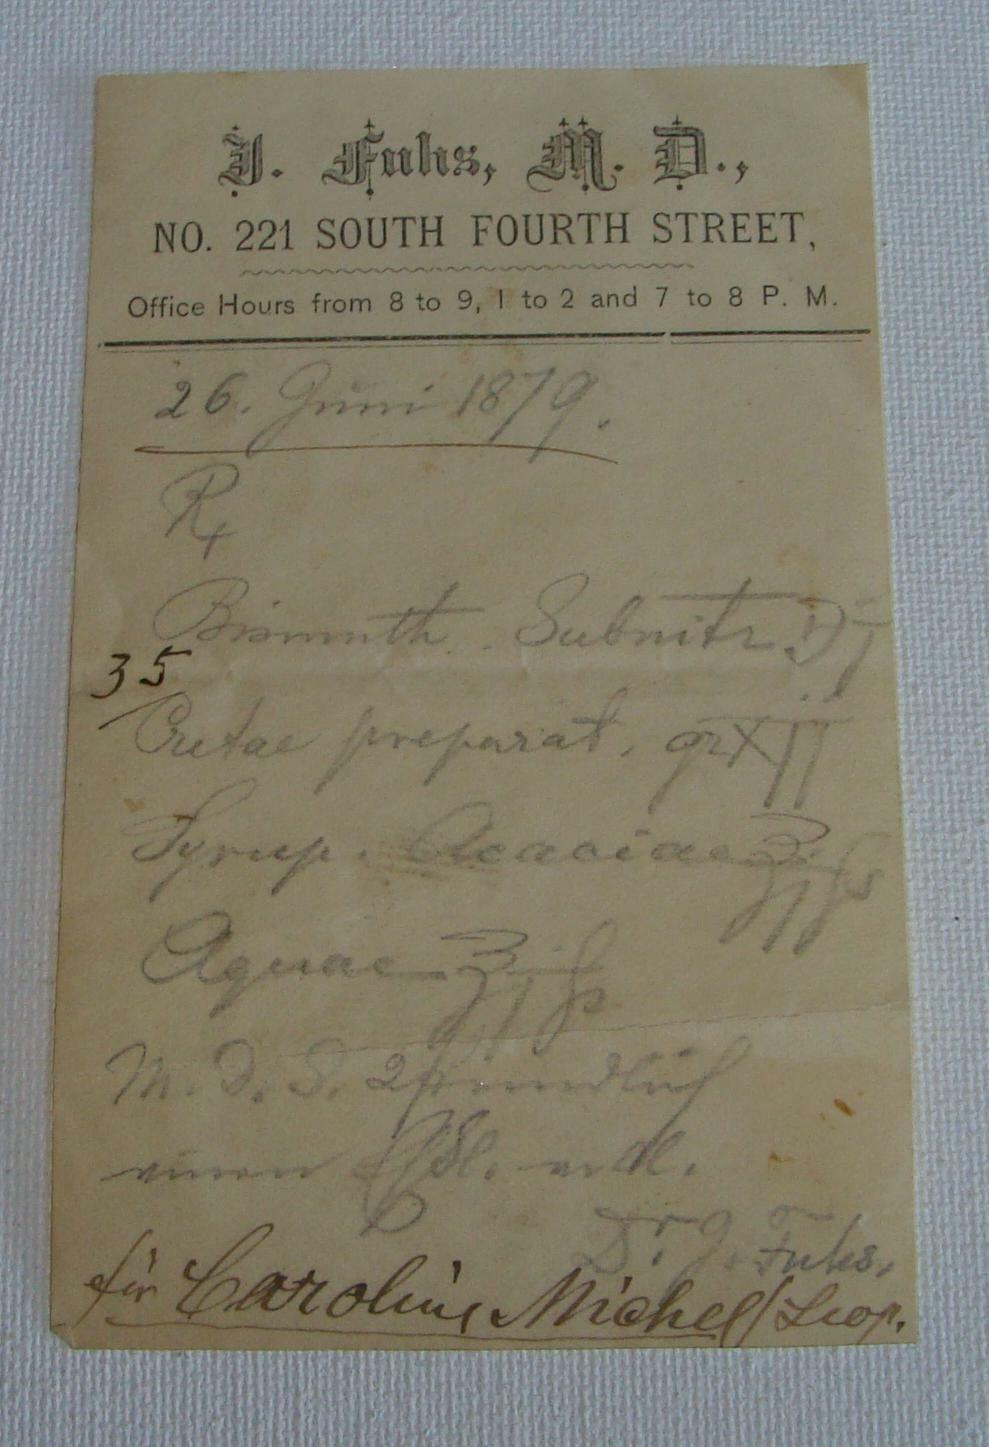 J. Fuhs, M. D.,
NO. 221 SOUTH FOURTH STREET,
Office Hours from 8 to 9, 1 to 2 and 7 to 8 P. M.
26. Juni 1879.
Rx
Bismuth. Subnitr. ℈j
35
Cretae preparat. gr XII
Syrup. Acaciae ℥ijß
Aquae ℥jß
M. D. S. 2stündlich
einen Eßl.
Dr. J. Fuhs.
für Caroline Michel / Leop.